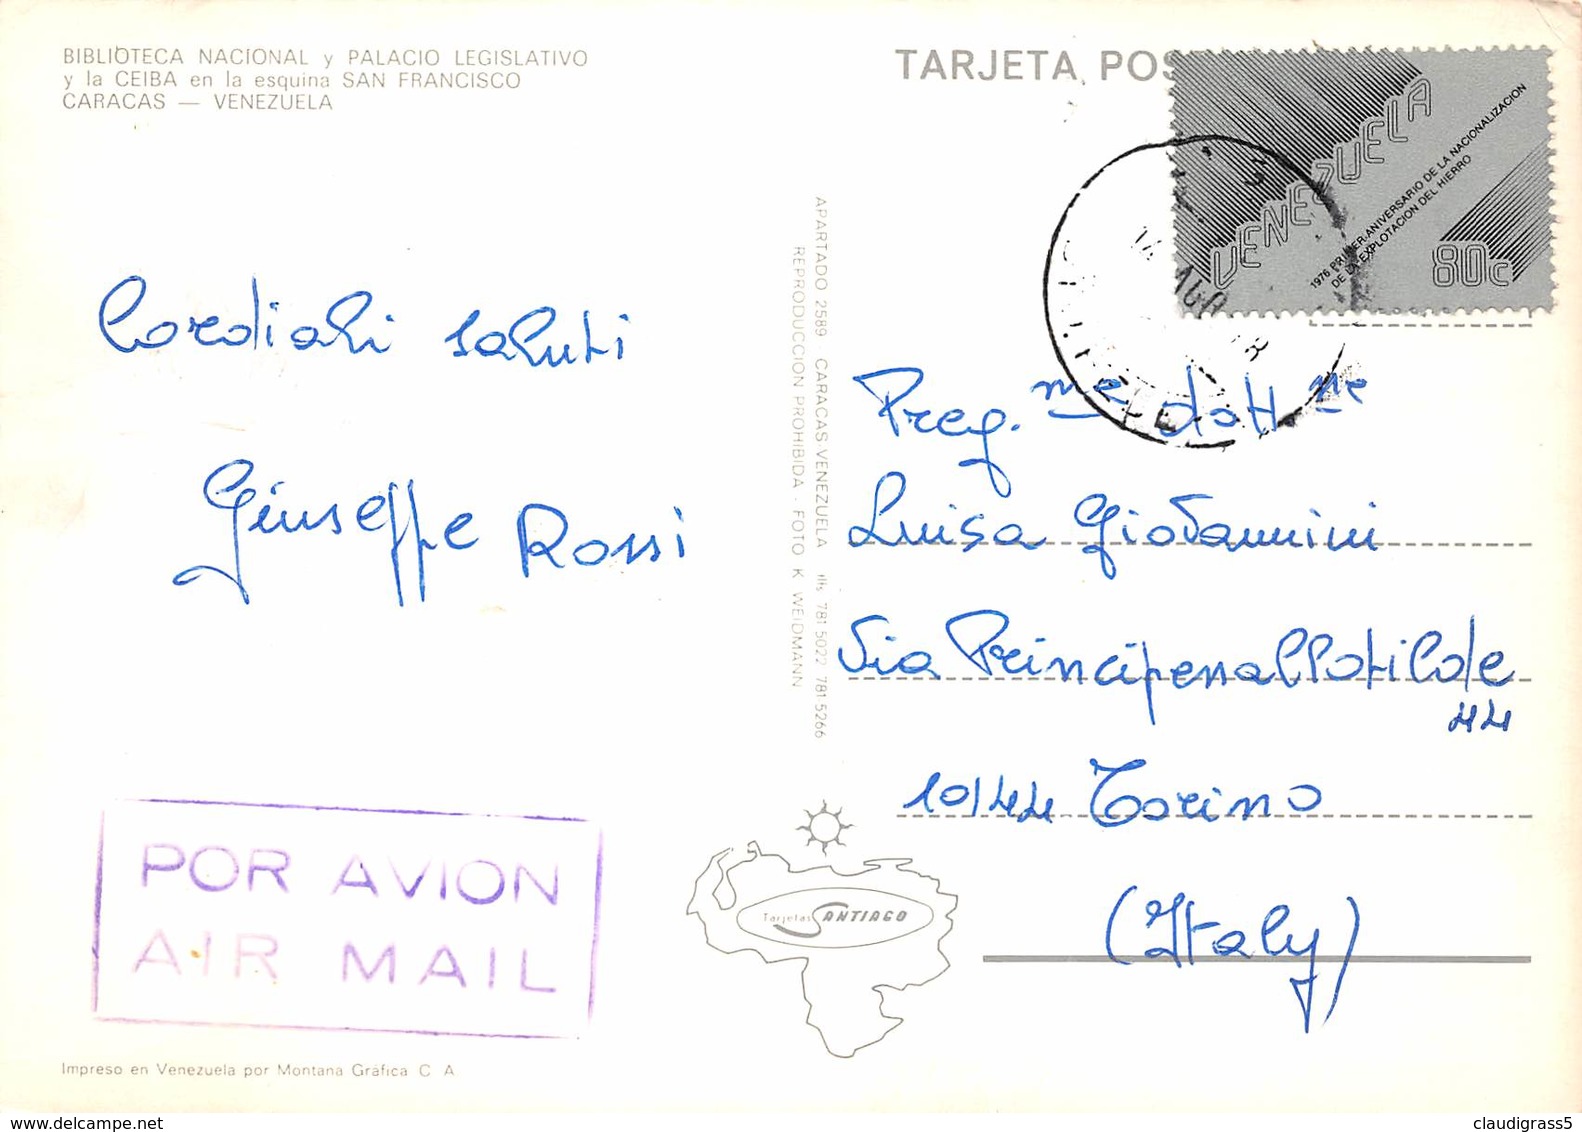 BIBLIOTECA NACIONAL y PALACIO LEGISLATIVO
y la CEIBA en la esquina SAN FRANCISCO
CARACAS — VENEZUELA
TARJETA POS
VENEZUELA
1976 PRIMER ANIVERSARIO DE LA NACIONALIZACION
DE LA EXPLOTACION DEL HIERRO
80c
Cordiali saluti
Giuseppe Rossi
APARTADO 2589 CARACAS-VENEZUELA tlfs 781 5022 781 5266
REPRODUCCION PROHIBIDA - FOTO K WEIDMANN
Preg.me dott.
Luisa Giovannini
Via Principessa Clotilde
44
10144 Torino
(Italy)
POR AVION
AIR MAIL
Tarjetas SANTIAGO
Impreso en Venezuela por Montana Gráfica C A
claudigrass5